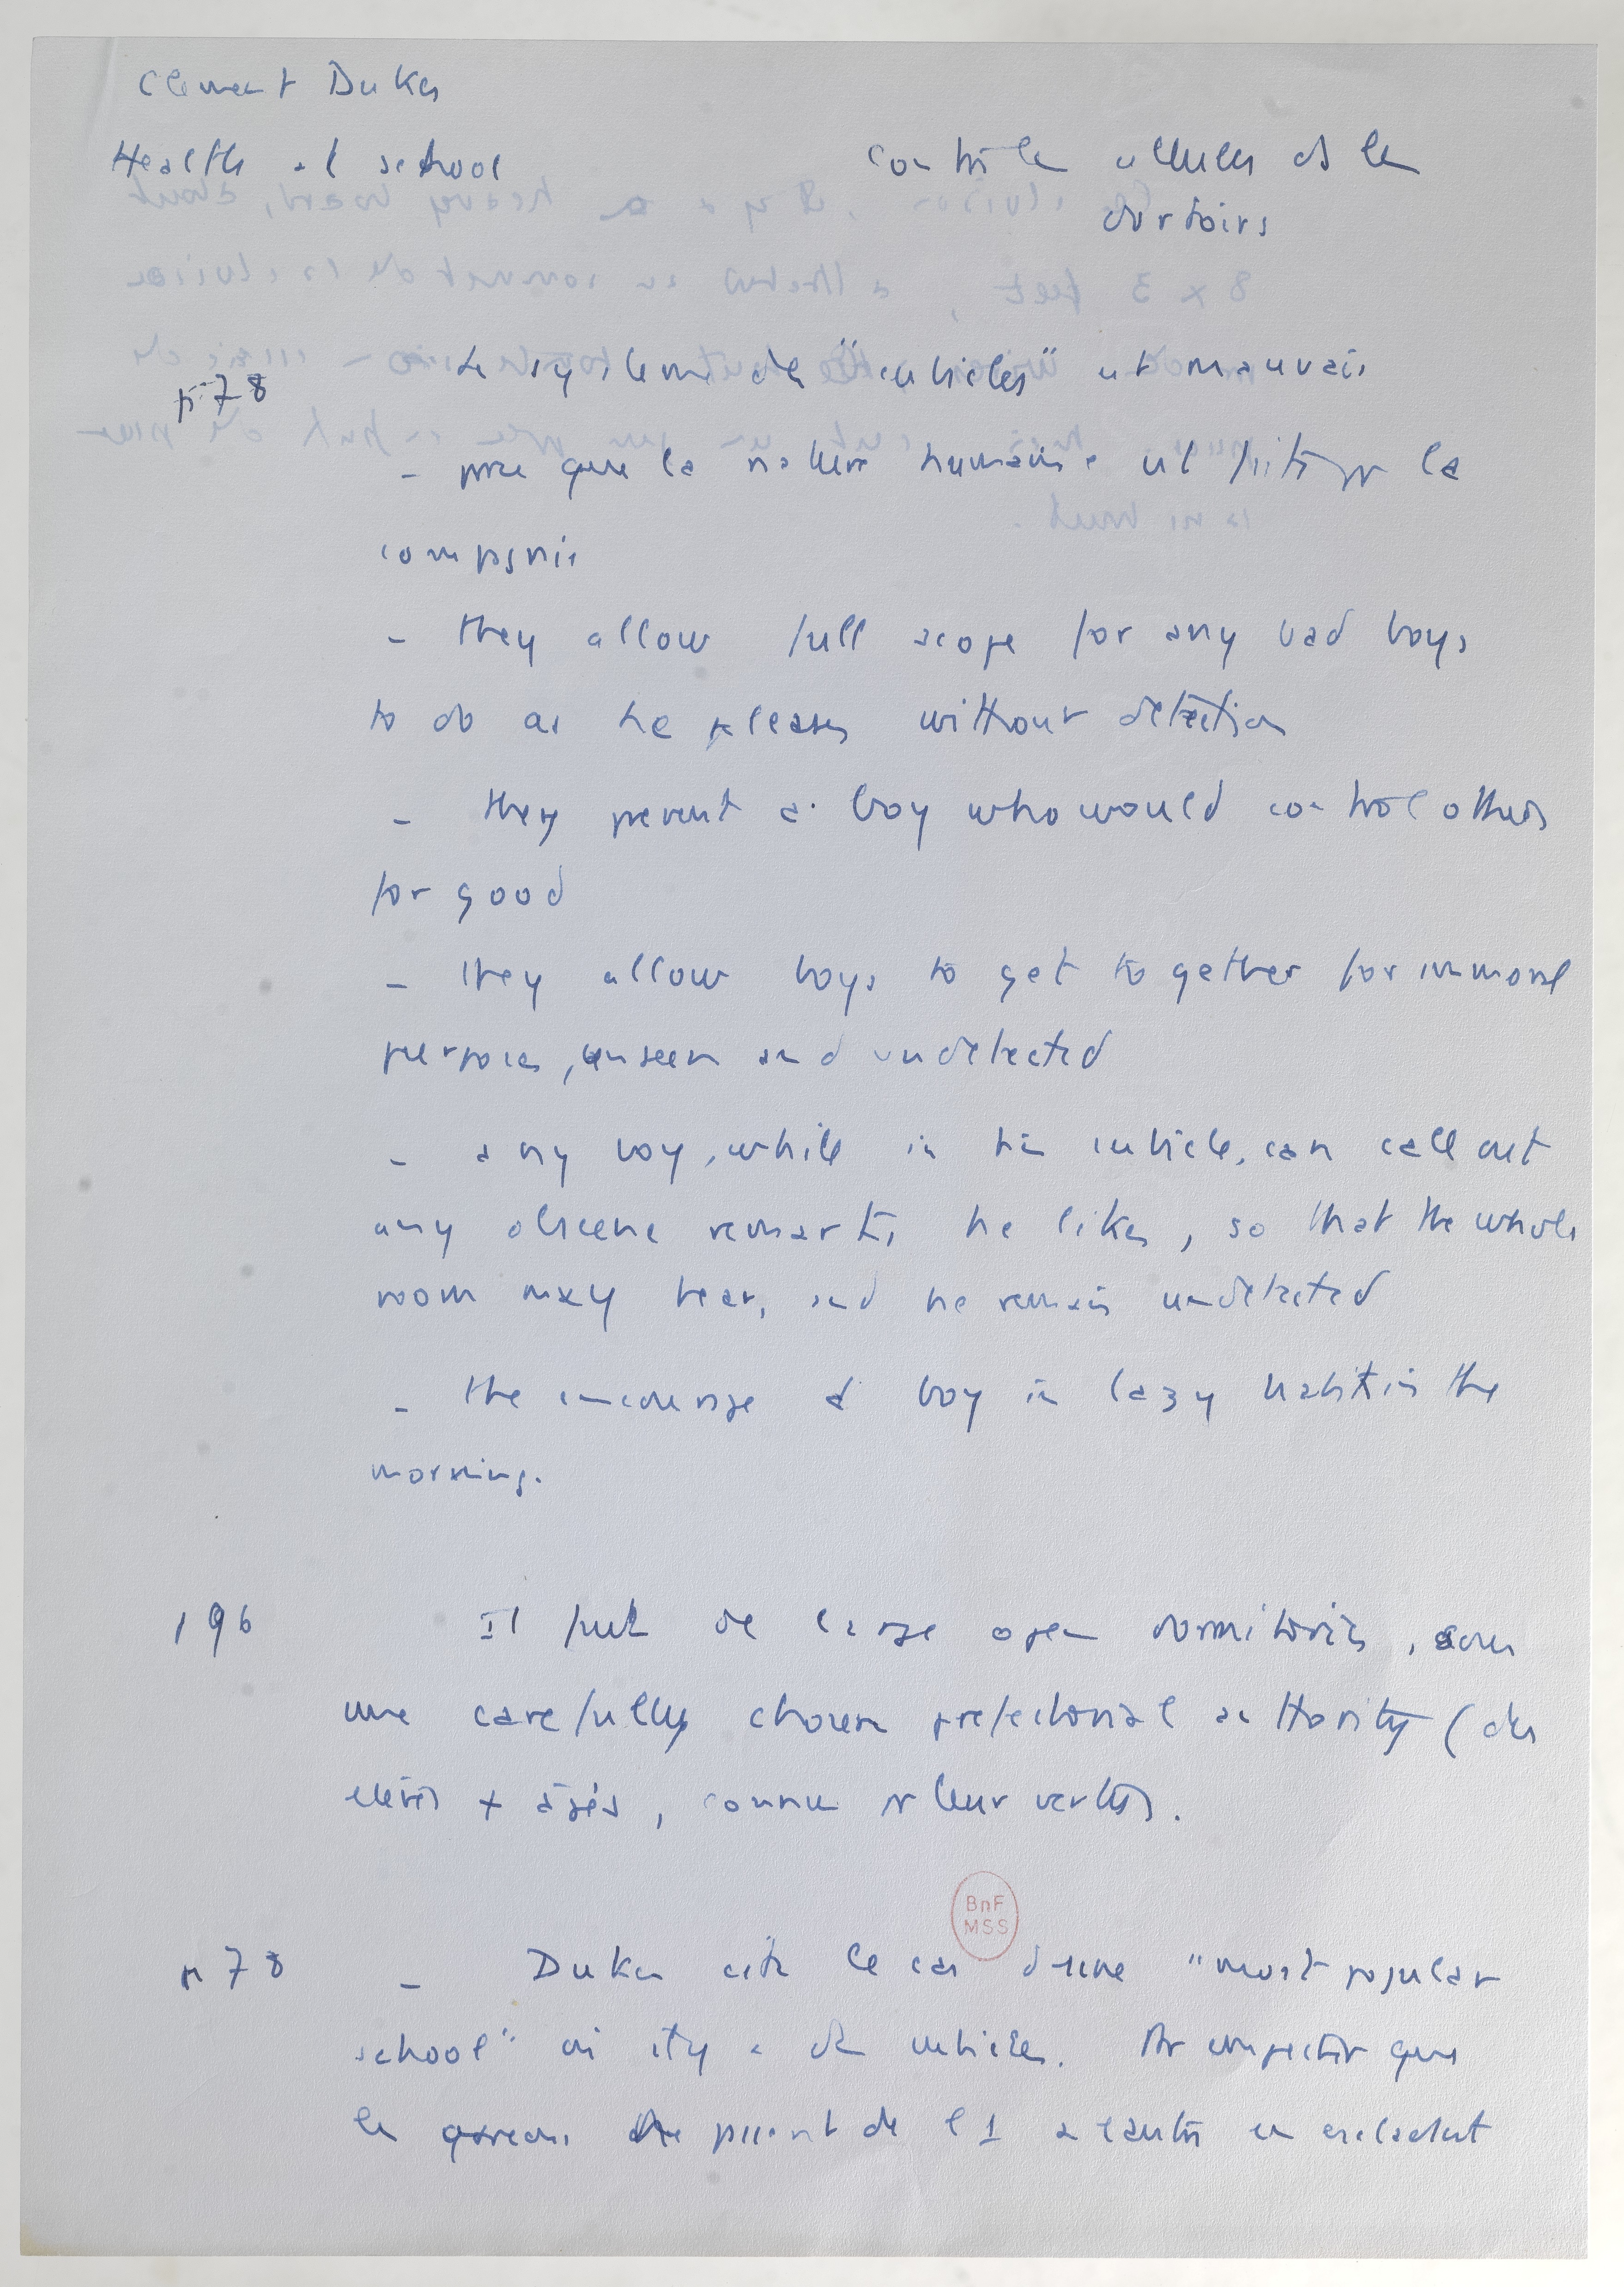 Clement Dukes
Health at school
contre les cellules ds les
dortoirs
p. 78
Le système des "cubicles" est mauvais
- pce que la nature humaine est faite pr la
compagnie
- they allow full scope for any bad boys
to do as he pleases without detection
- they prevent a boy who would control others
for good
- they allow boys to get together for immoral
purposes, unseen and undetected
- any boy, while in his cubicle, can call out
any obscene remarks he likes, so that the whole
room may hear, and he remain undetected
- the encourage a boy in lazy habit in the
morning.
196
Il faut de large open dormitories, sous
une carefully chosen prefectorial authority (des
élèves + âgés, connus pr leur vertus).
p 78
- Dukes cite le cas d'une "most popular
school" où il y a des cubicles. Pr empêcher que
les garçons ne passent de l'1 à l'autre en escaladant
BnF
MSS